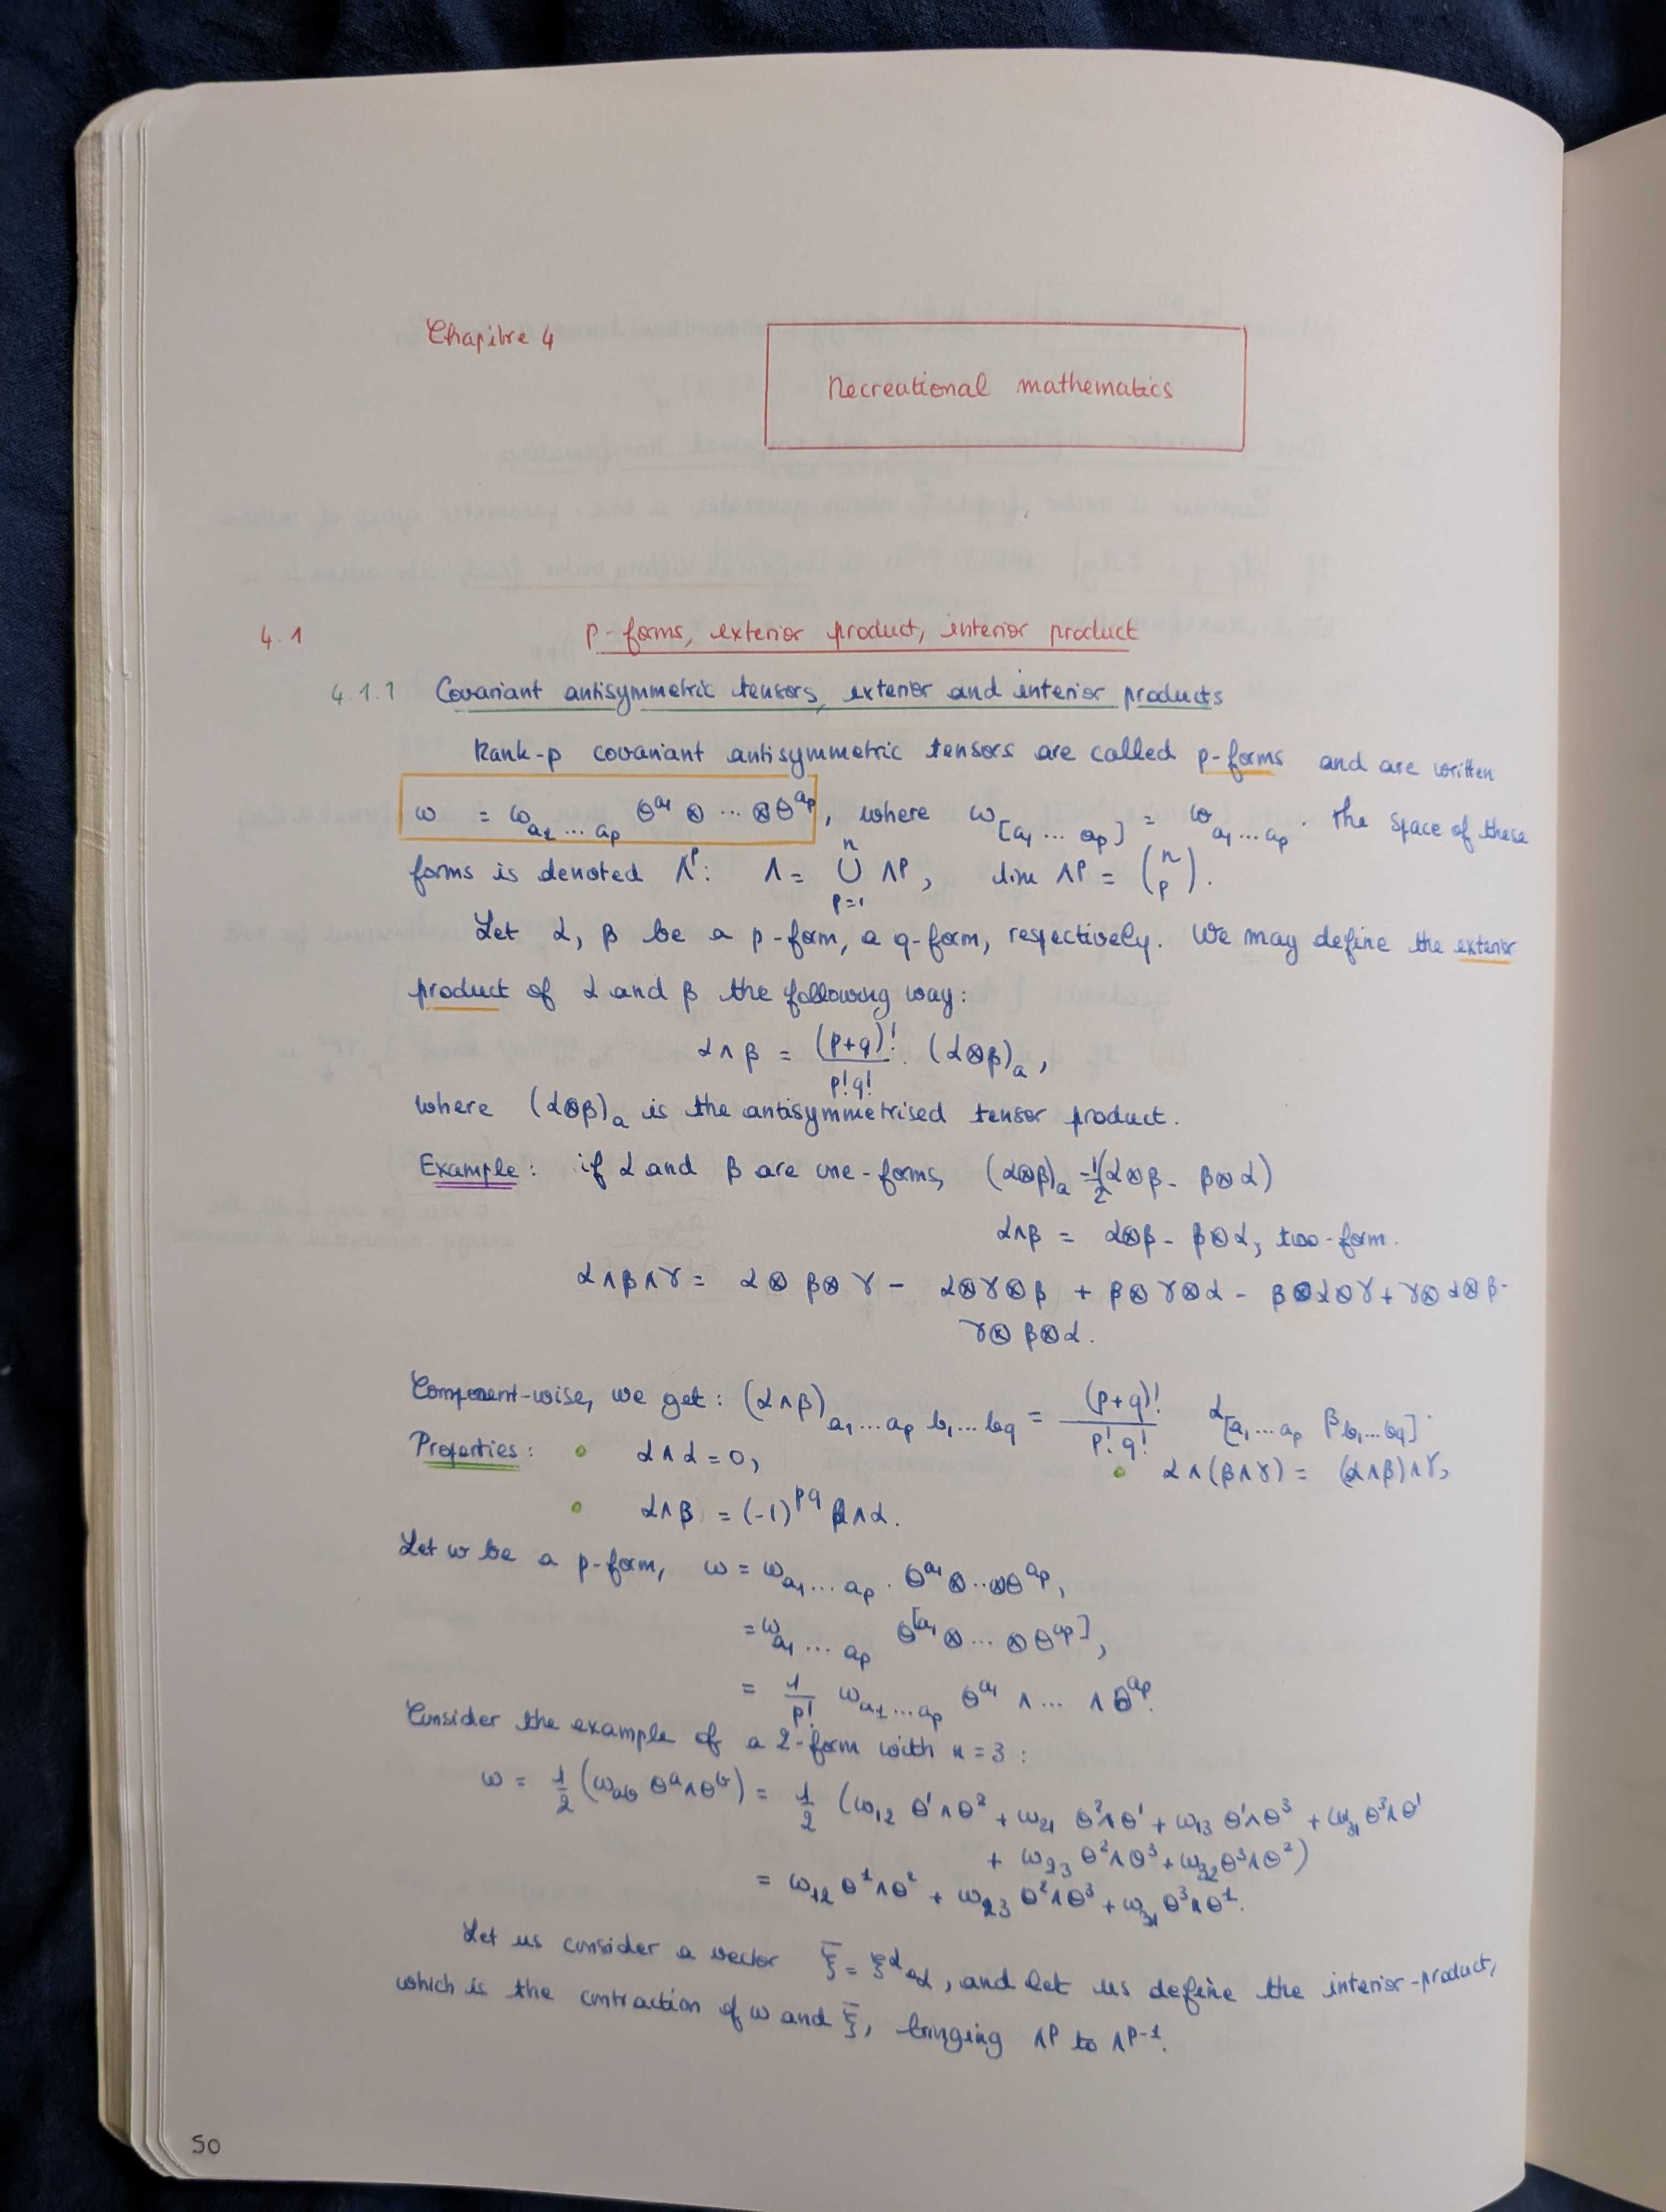 Chapitre 4
Recreational mathematics
4.1 p-forms, exterior product, interior product
4.1.1 Covariant antisymmetric tensors, exterior and interior products
Rank-p covariant antisymmetric tensors are called p-forms and are written
ω = ω_{a₁ ... a_p} θ^{a₁} ⊗ ... ⊗ θ^{a_p}, where ω_{[a₁ ... a_p]} = ω_{a₁ ... a_p}. The space of these
forms is denoted Λ^p: Λ = ∪_{p=1}^{n} Λ^p, dim Λ^p = (n p).
Let α, β be a p-form, a q-form, respectively. We may define the exterior
product of α and β the following way:
α ∧ β = (p+q)!/(p!q!) · (α⊗β)_a,
where (α⊗β)_a is the antisymmetrised tensor product.
Example: if α and β are one-forms, (α⊗β)_a = 1/2(α⊗β - β⊗α)
α∧β = α⊗β - β⊗α, two-form.
α∧β∧γ = α⊗β⊗γ - α⊗γ⊗β + β⊗γ⊗α - β⊗α⊗γ + γ⊗α⊗β -
γ⊗β⊗α.
Component-wise, we get: (α∧β)_{a₁...a_p b₁...b_q} = (p+q)!/(p!q!) α_{[a₁...a_p} β_{b₁...b_q]}.
Properties: • α∧α = 0, • α∧(β∧γ) = (α∧β)∧γ,
• α∧β = (-1)^{pq} β∧α.
Let ω be a p-form, ω = ω_{a₁...a_p} · θ^{a₁}⊗...⊗θ^{a_p},
= ω_{a₁...a_p} θ^{[a₁}⊗...⊗θ^{a_p]},
= 1/p! ω_{a₁...a_p} θ^{a₁} ∧ ... ∧ θ^{a_p}.
Consider the example of a 2-form with n=3:
ω = 1/2 (ω_{ab} θ^a∧θ^b) = 1/2 (ω₁₂ θ¹∧θ² + ω₂₁ θ²∧θ¹ + ω₁₃ θ¹∧θ³ + ω₃₁ θ³∧θ¹
+ ω₂₃ θ²∧θ³ + ω₃₂ θ³∧θ²)
= ω₁₂ θ¹∧θ² + ω₂₃ θ²∧θ³ + ω₃₁ θ³∧θ¹.
Let us consider a vector ξ̄ = ξ^α e_α, and let us define the interior-product,
which is the contraction of ω and ξ̄, bringing Λ^p to Λ^{p-1}.
50